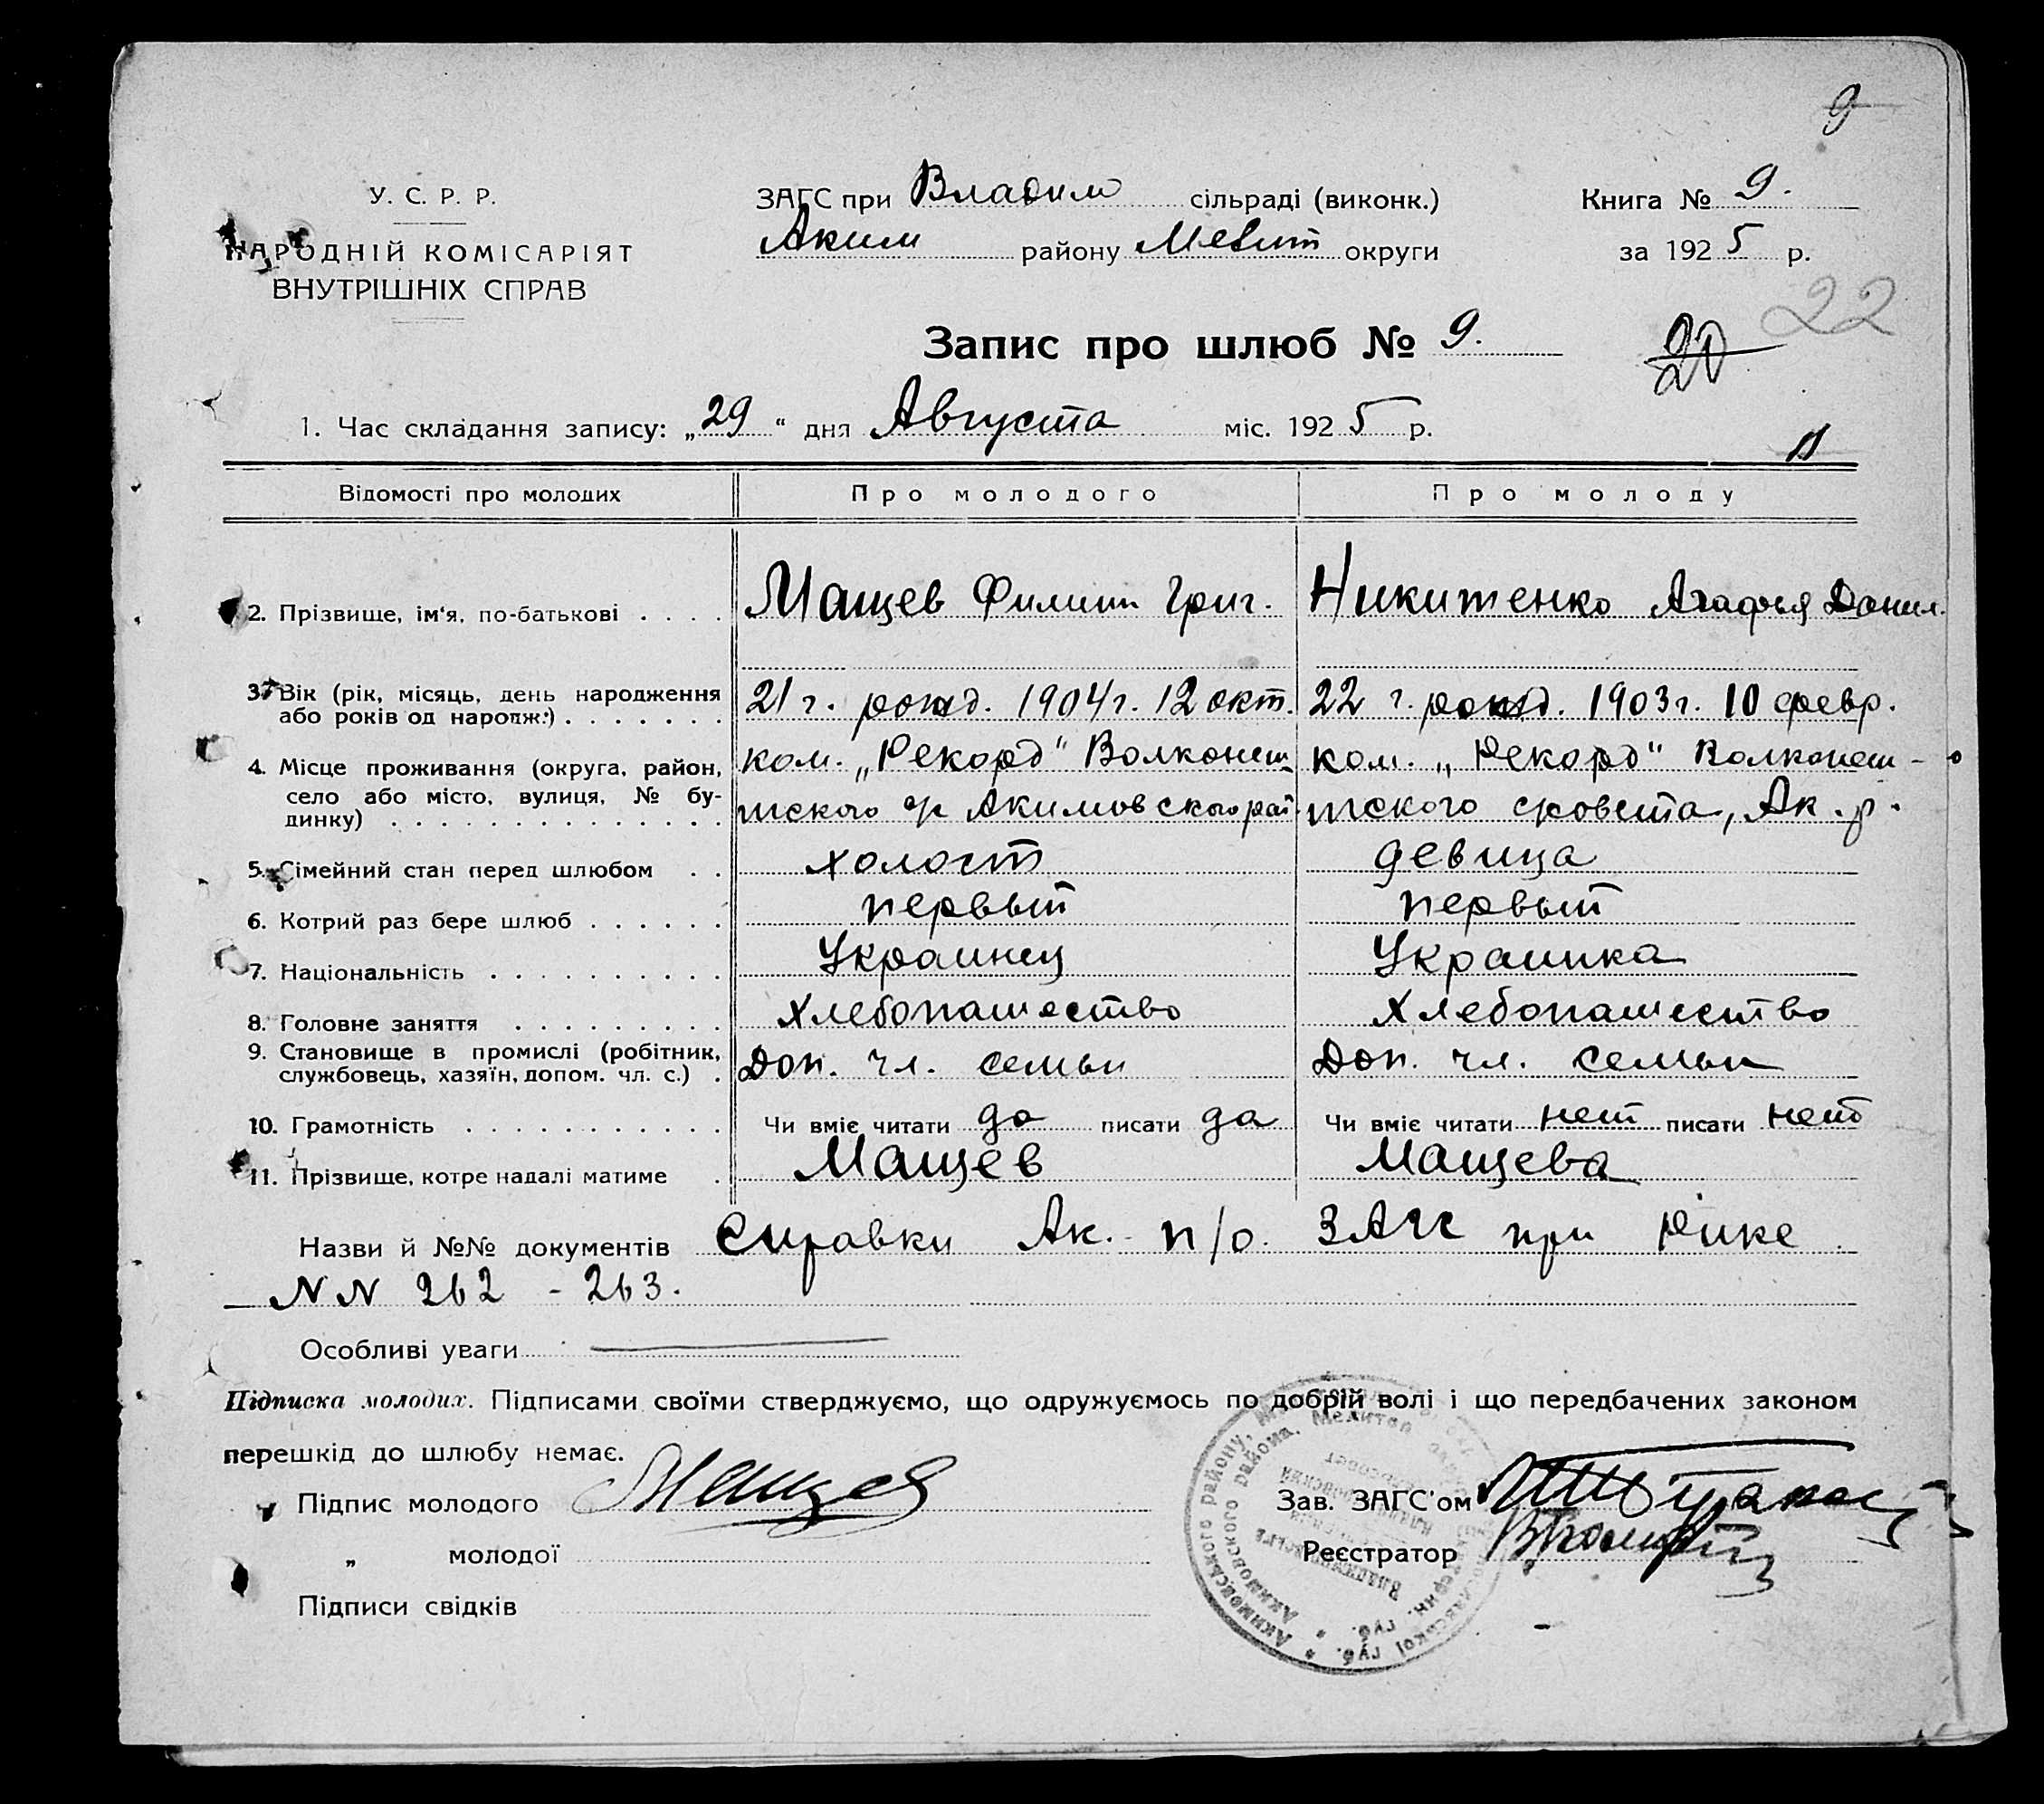 9
У. С. Р. Р.
НАРОДНІЙ КОМІСАРІЯТ
ВНУТРІШНІХ СПРАВ
ЗАГС при Владим сільраді (виконк.)
Аким району Мелит округи
Книга № 9.
за 1925 р.
Запис про шлюб № 9.
20
22
1. Час складання запису: „29“ дня Августа міс. 1925 р.
Відомості про молодих
Про молодого
Про молоду
2. Прізвище, ім'я, по-батькові . . . .
Мащев Филипп Григ.
Никитенко Агафья Данил.
3. Вік (рік, місяць, день народження
або років од народж.) . . . . . . .
21 г. рожд. 1904 г. 12 окт.
22 г. рожд. 1903 г. 10 февр.
4. Місце проживання (округа, район,
село або місто, вулиця, № бу-
динку) . . . . . . . . . . . . . .
ком. „Рекорд“ Волконеш
тского с/с Акимовского рай.
ком. „Рекорд“ Волконеш-
тского с/совета, Ак. р.
5. Сімейний стан перед шлюбом . .
холост
девица
6. Котрий раз бере шлюб . . . . . .
первый
первый
7. Національність . . . . . . . . . .
Украинец
Украинка
8. Головне заняття . . . . . . . . .
Хлебопашество
Хлебопашество
9. Становище в промислі (робітник,
службовець, хазяїн, допом. чл. с.) .
Доп. чл. семьи
Доп. чл. семьи
10. Грамотність . . . . . . . . . . . .
Чи вміє читати да писати да
Чи вміє читати нет писати нет
11. Прізвище, котре надалі матиме .
Мащев
Мащева
Назви й №№ документів Справки Ак. п/о. ЗАГС при Рике
NN 262 - 263.
Особливі уваги
Підписка молодих. Підписами своїми стверджуємо, що одружуємось по добрій волі і що передбачених законом
перешкід до шлюбу немає.
Підпис молодого Мащев
„ молодої
Підписи свідків
Зав. ЗАГС'ом
Реєстратор
Акимовського району,
Акимовского района, Мелитоп